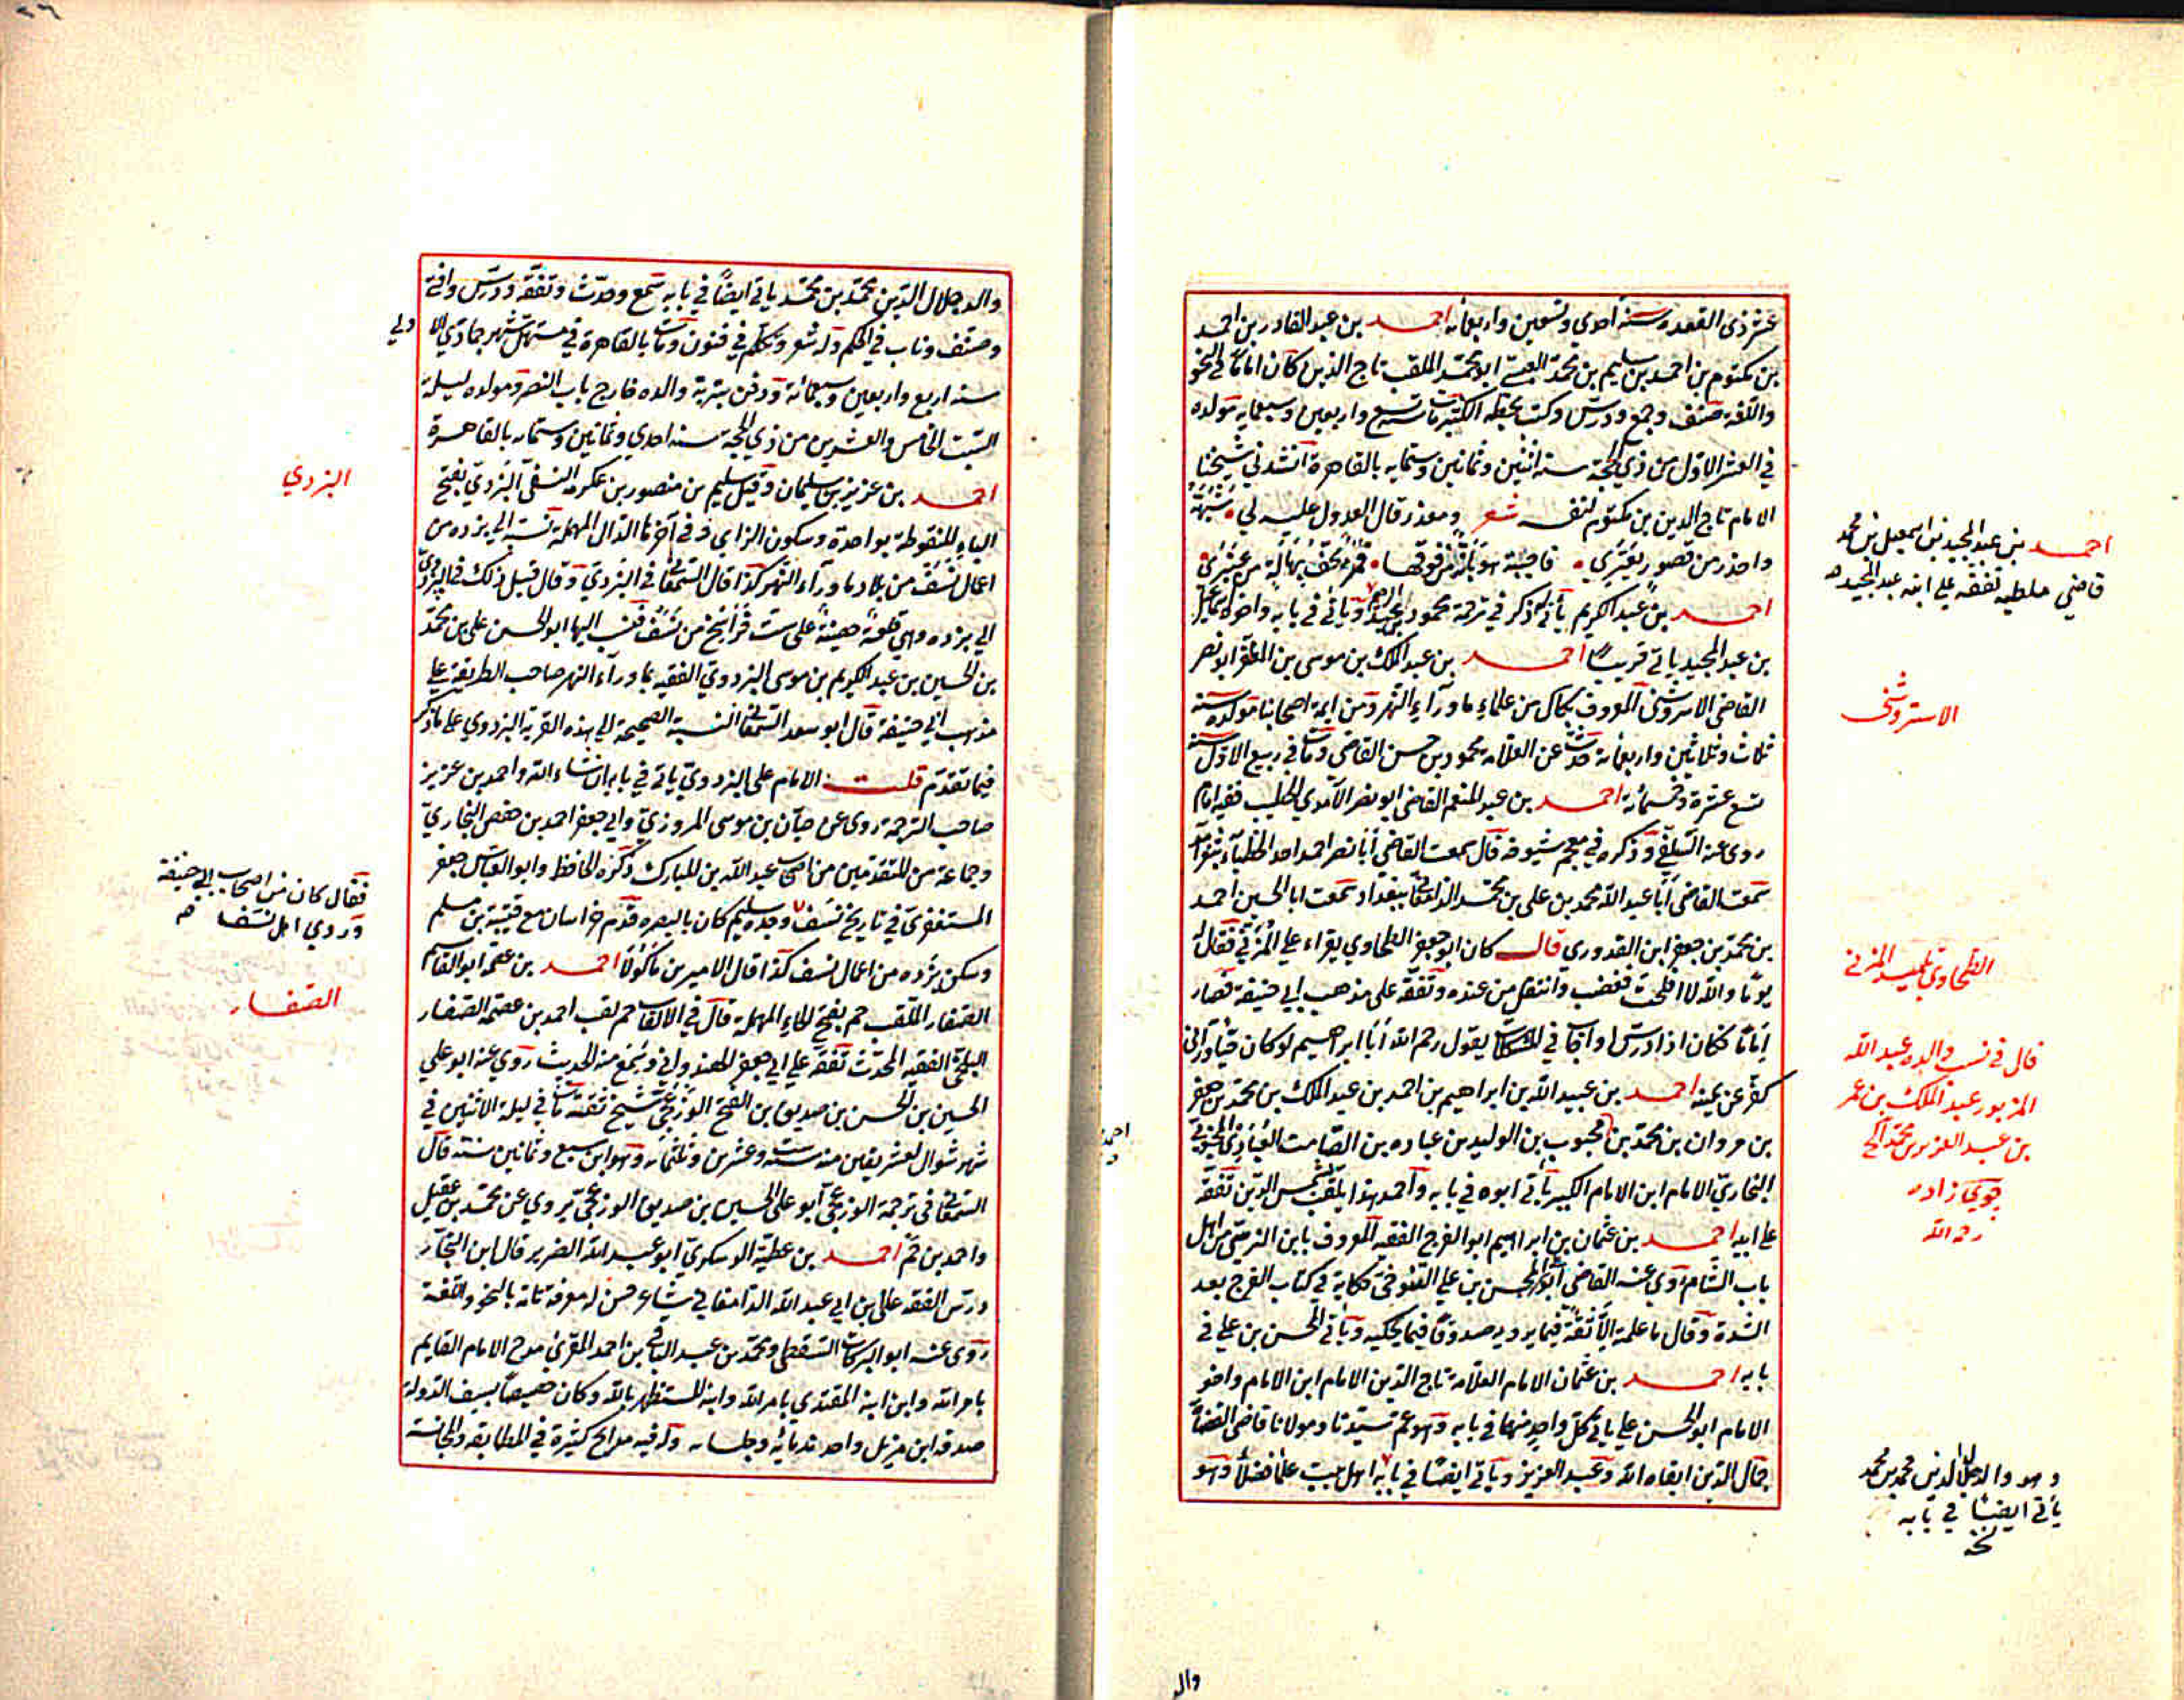 عشر ذى القعده سنة احدى وتسعين واربعمائه احمد بن عبد القادر بن احمد
بن مكتوم بن احمد بن سليم بن محمد القيسي ابو محمد الملقب تاج الدين كان اماما في النحو
واللغة صنف وجمع ودرس وكتب بخطه الكثير مات سنة تسع واربعين وسبعمايه مولده
في العشر الاول من ذي الحجة سنة اثنين وثمانين وستمايه بالقاهرة انشدني شيخنا
الامام تاج الدين بن مكتوم لنفسه شعر ومعذر قال العدول عليه لي شبهه
واحذر من قصور يعتري فاجبته هو بانة من فوقها قمر تحف بهالة من عنبر
احمد بن عبد الكريم يأتي ذكر في ترجمة محمود بن عبيد الله ويأتي في بابه واخوه اسمعيل
بن عبد المجيد ياتي قريبا احمد بن عبد الملك بن موسى بن المظفر ابو نصر
القاضي الاسروشني المعروف بكاك من علماء ما وراء النهر ومن ايمة اصحابنا مولده سنة
ثلاث وثلاثين واربعمائه حدث عن العلامه محمود بن حسن القاضي ومات في ربيع الاول سنة
تسع عشرة وخمسمائه احمد بن عبد المنعم القاضي ابو نصر الآمدي الخطيب فقيه امام
روى عنه السلفي وذكره في معجم شيوخه قال سمعت القاضي ابا نصر احمد احد الخطباء بثغر آمد
سمعت القاضي ابا عبد الله محمد بن علي بن محمد الدامغاني ببغداد سمعت ابا الحسين احمد
بن محمد بن جعفر ابن القدوري قال كان ابو جعفر الطحاوي يقراء على المزني فقال له
يوما والله لا افلحت فغضب وانتقل من عنده وتفقه على مذهب ابي حنيفة فصار
اماما فكان اذا درس او اجاب في المشكلات يقول رحم الله ابا ابراهيم لو كان حيا ورآني
كفر عن يمينه احمد بن عبيد الله بن ابراهيم بن احمد بن عبد الملك بن محمد بن جعفر
بن مروان بن محمد بن محبوب بن الوليد بن عباده بن الصامت العبادي المحبوبي
البخاري الامام ابن الامام الكبير يأتي ابوه في بابه واحمد هذا يلقب شمس الدين تفقه
على ابيه احمد بن عثمان بن ابراهيم ابو الفرج الفقيه المعروف بابن النرسي من اهل
باب الشام روي عنه القاضي ابو علي المحسن بن علي التنوخي حكاية في كتاب الفرج بعد
الشدة وقال ما علمته الا ثقة فيما يرويه صدوقا فيما يحكيه ويأتي الحسن بن علي في
بابه احمد بن عثمان الامام العلامة تاج الدين الامام ابن الامام واخو
الامام ابو الحسن علي يأتي كل واحد منهما في بابه وهو عم سيدنا ومولانا قاضي القضاة
جمال الدين ابقاه الله وعبد العزيز وياتي ايضا في بابه اهل بيت علما فضلا وهو
احمد بن عبد المجيد بن اسمعيل بن محمد
قاضي ملطيه تفقه على ابنه عبد المجيد
الاستروشنى
الطحاوي تلميذ المزني
قال في نسب والده عبد الله
المزبور عبد الملك بن عمر
بن عبد العزيز بن محمد الخ
جوي زاده
رحمه الله
وهو والد جلال الدين محمد بن محمد
يأتي ايضا في بابه
نخه
وال
والد جلال الدين محمد بن محمد ياتي ايضا في بابه سمع وحدث وتفقه ودرس وافتى
وصنف وناب في الحكم وله شعر وتكلم في فنون ومات بالقاهرة في مستهل شهر جمادي الاولى
سنه اربع واربعين وسبعمائه ودفن بتربة والده خارج باب النصر ومولده ليلة
السبت الخامس والعشرين من ذي الحجة سنه احدي وثمانين وستمايه بالقاهرة
احمد بن عزيز بن سليمان وقيل سليم بن منصور بن عكرمه النسفي البزدي بفتح
الباء المنقوطة بواحدة وسكون الزاى وفى آخرها الدال المهملة نسبة الي بزده من
اعمال نسف من بلاد ما ورآء النهر كذا قال السمعاني في البزدي وقال قبل ذلك في البزدوي
الي بزده وهي قلعة حصينة على ست فراسخ من نسف نسب اليها ابو الحسن علي بن محمد
بن الحسين بن عبد الكريم بن موسى البزدوي الفقيه بما ورآء النهر صاحب الطريقة على
مذهب ابي حنيفة قال ابو سعد السمعاني النسبة الصحيحة الي هذه القرية البزدوي على ما ذكر
فيما تقدم قلت الامام على البزدوي ياتي في بابه ان شاء الله واحمد بن عزيز
صاحب الترجمة روى عن حبان بن موسى المروزي وابي جعفر احمد بن حفص البخاري
وجماعة من المتقدمين من اصحاب عبد الله بن المبارك ذكره الحافظ وابو العباس جعفر
المستغفري في تاريخ نسف وجده سليم كان بالبصره قدم خراسان مع قتيبة بن مسلم
وسكن بزده من اعمال نسف كذا قال الامير بن ماكولا احمد بن عصمه ابو القاسم
الصفار الملقب حم بفتح الحاء المهملة قال في الالقاب حم لقب احمد بن عصمة الصفار
البلخي الفقيه المحدث تفقه علي ابي جعفر الهندواني وسمع منه الحديث روي عنه ابو علي
الحسين بن الحسن بن صديق بن الفتح الوزغجي شيخ ثقة مات في ليلة الاثنين في
شهر شوال لعشر بقين منه سنة ست وعشرين وثلثمائه وهو ابن سبع وثمانين سنة قال
السمعاني في ترجمة الوزغجي ابو علي الحسين بن صديق الوزغجي يروي عن محمد بن عقيل
واحمد بن حم احمد بن عطية الدسكري ابو عبد الله الضرير قال ابن النجار
درس الفقه على ابن ابي عبد الله الدامغاني شاعر حسن له معرفة تامة بالنحو واللغة
روى عنه ابو البركات السقطي ومحمد بن عبد الباقي بن احمد المقرئ مدح الامام القايم
بامر الله وابن ابنه المقتدي بامر الله وابنه المستظهر بالله وكان خصيصا بسيف الدولة
صدقه ابن مزيد واحد ندمائه وجلسايه وله فيه مدايح كثيرة في المطابقه والمجانسة
البزدي
فقال كان من اصحاب ابي حنيفة
الصفار